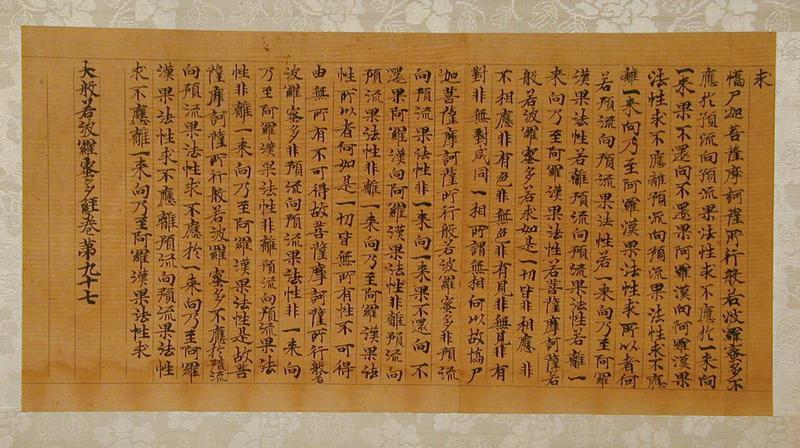 求
憍尸迦菩薩摩訶薩所行般若波羅蜜多不
應於預流向預流果法性求不應於一來向
一來果不還向不還果阿羅漢向阿羅漢果
法性求不應離預流向預流果法性求不應
離一來向乃至阿羅漢果法性求所以者何
若預流向預流果法性若一來向乃至阿羅
漢果法性若離預流向預流果法性若離一
來向乃至阿羅漢果法性若菩薩摩訶薩若
般若波羅蜜多若求如是一切皆非相應非
不相應非有色非無色非有見非無見非有
對非無對咸同一相所謂無相何以故憍尸
迦菩薩摩訶薩所行般若波羅蜜多非預流
向預流果法性非一來向一來果不還向不
還果阿羅漢向阿羅漢果法性非離預流向
預流果法性非離一來向乃至阿羅漢果法
性所以者何如是一切皆無所有性不可得
由無所有不可得故菩薩摩訶薩所行般若
波羅蜜多非預流向預流果法性非一來向
乃至阿羅漢果法性非離預流向預流果法
性非離一來向乃至阿羅漢果法性是故菩
薩摩訶薩所行般若波羅蜜多不應於預流
向預流果法性求不應於一來向乃至阿羅
漢果法性求不應離預流向預流果法性
求不應離一來向乃至阿羅漢果法性求
大般若波羅蜜多經卷第九十七